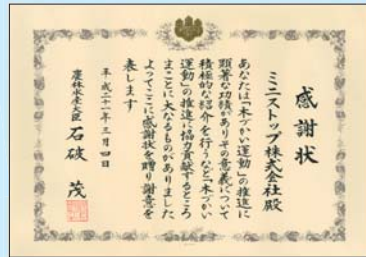 感謝状
ミニストップ株式会社殿
あなたは「木づかい運動」の推進に
顕著な功績がありその意義について
積極的な紹介を行うなど「木づかい
運動」の推進に協力貢献するところ
まことに大なるものがありました
よってここに感謝状を贈り謝意を
表します
平成二十一年三月四日
農林水産大臣 石破 茂